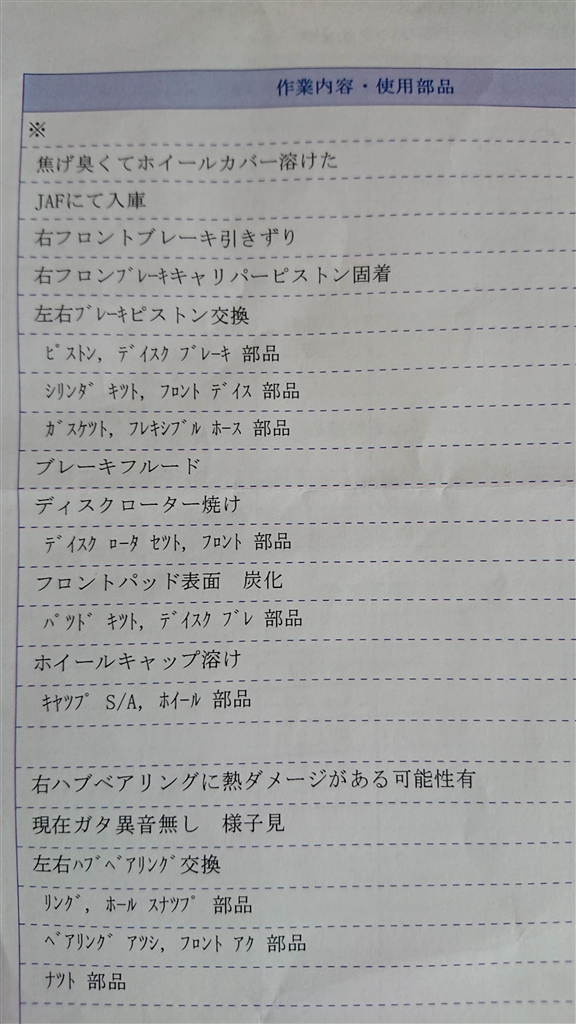 作業内容・使用部品
※
焦げ臭くてホイールカバー溶けた
JAFにて入庫
右フロントブレーキ引きずり
右フロンﾌﾞﾚｰｷキャリパーピストン固着
左右ﾌﾞﾚｰｷピストン交換
ﾋﾟｽﾄﾝ, ﾃﾞｲｽｸ ﾌﾞﾚｰｷ 部品
ｼﾘﾝﾀﾞ ｷﾂﾄ, ﾌﾛﾝﾄ ﾃﾞｲｽ 部品
ｶﾞｽｹﾂﾄ, ﾌﾚｷｼﾌﾞﾙ ﾎｰｽ 部品
ブレーキフルード
ディスクローター焼け
ﾃﾞｲｽｸ ﾛｰﾀ ｾﾂﾄ, ﾌﾛﾝﾄ 部品
フロントパッド表面　炭化
ﾊﾟﾂﾄﾞ ｷﾂﾄ, ﾃﾞｲｽｸ ﾌﾞﾚ 部品
ホイールキャップ溶け
ｷﾔﾂﾌﾟ S/A, ﾎｲｰﾙ 部品
右ハブベアリングに熱ダメージがある可能性有
現在ガタ異音無し　様子見
左右ﾊﾌﾞﾍﾞｱﾘﾝｸﾞ交換
ﾘﾝｸﾞ, ﾎｰﾙ ｽﾅﾂﾌﾟ 部品
ﾍﾞｱﾘﾝｸﾞ ｱﾂｼ, ﾌﾛﾝﾄ ｱｸ 部品
ﾅﾂﾄ 部品